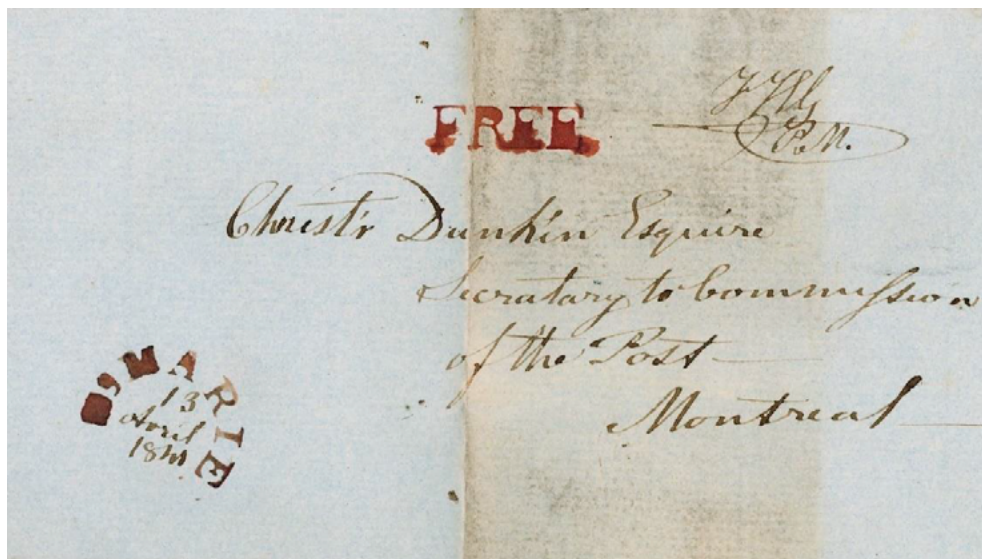 FREE
P.M.
Christ'r Dunkin Esquire
Secratary to Commission
of the Post
Montreal
MARIE
13
April
1841